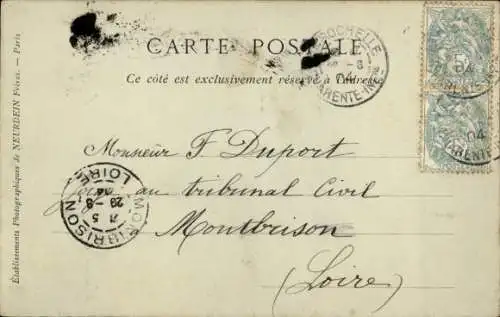 CARTE POSTALE
Ce côté est exclusivement réservé à l'adresse
Monsieur F Duport
au tribunal Civil
Montbrison
(Loire)
Établissements Photographiques de NEURDEIN Frères. — Paris
ROCHELLE
04
MONTBRISON
LOIRE
5
29-8
04